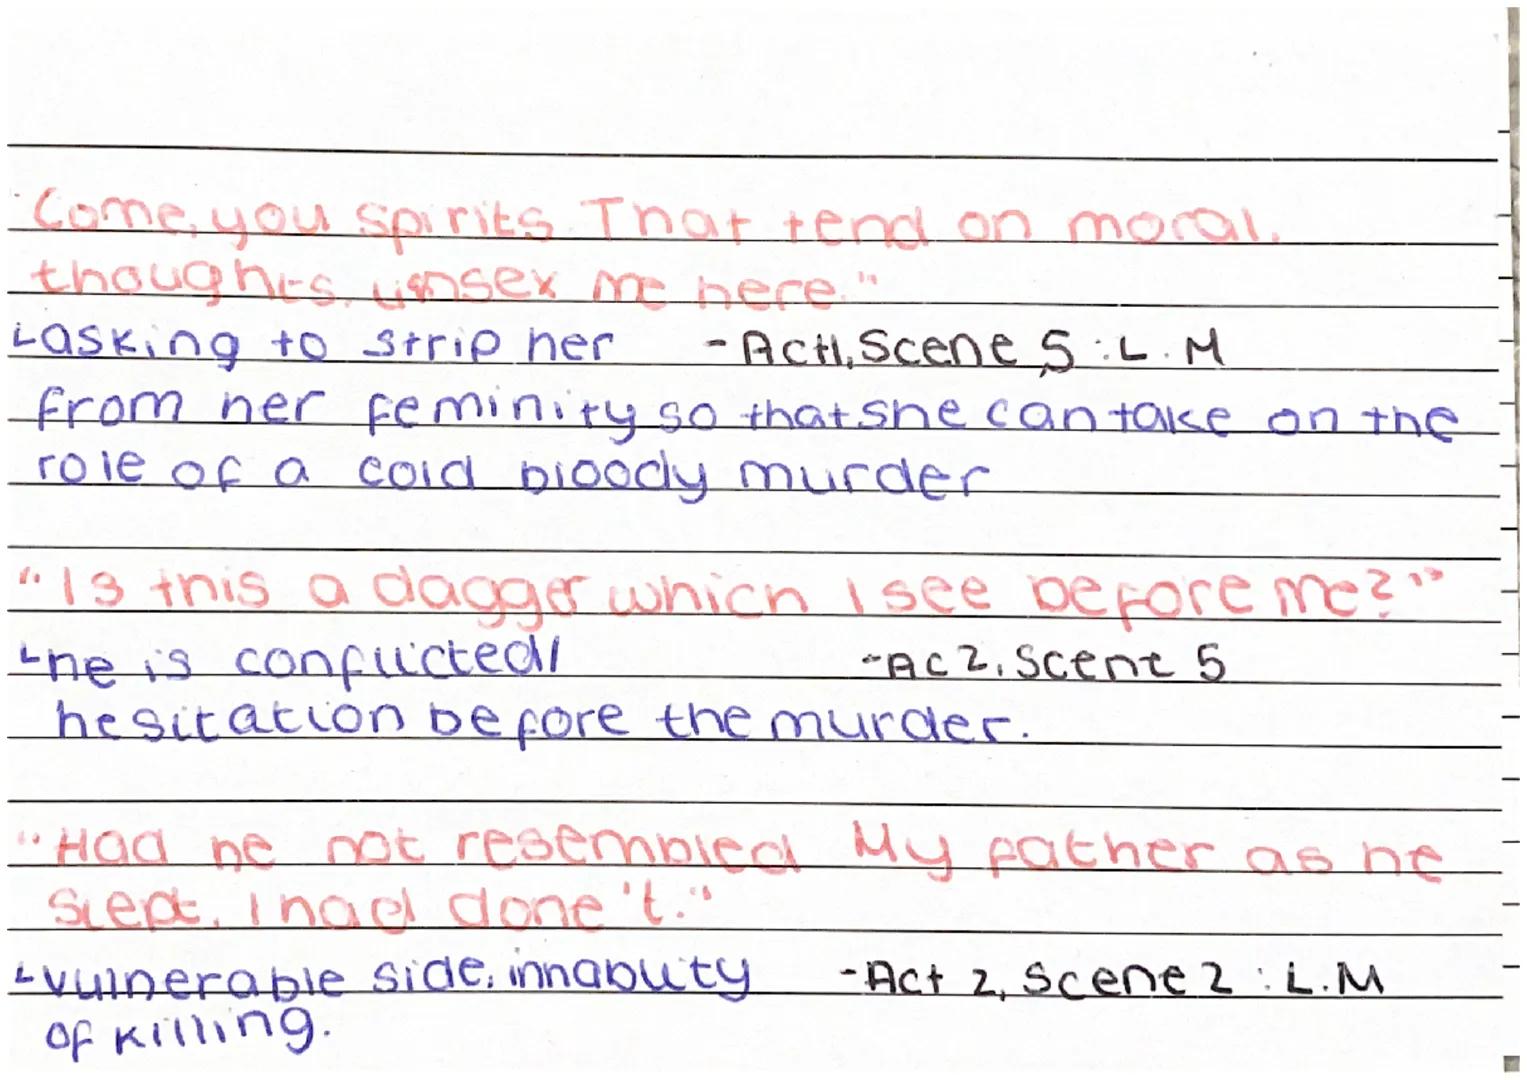 "Come, you spirits That tend on moral.
thoughts, unsex me here."
↳asking to strip her -Act1, Scene 5 : L.M
from her feminity so that she can take on the
role of a cold bloody murder
"Is this a dagger which I see before me?"
↳he is conflicted/ -Ac 2, Scene 5
hesitation before the murder.
"Had he not resembled My father as he
slept, I had done't."
↳vulnerable side, innability -Act 2, Scene 2 : L.M
of killing.